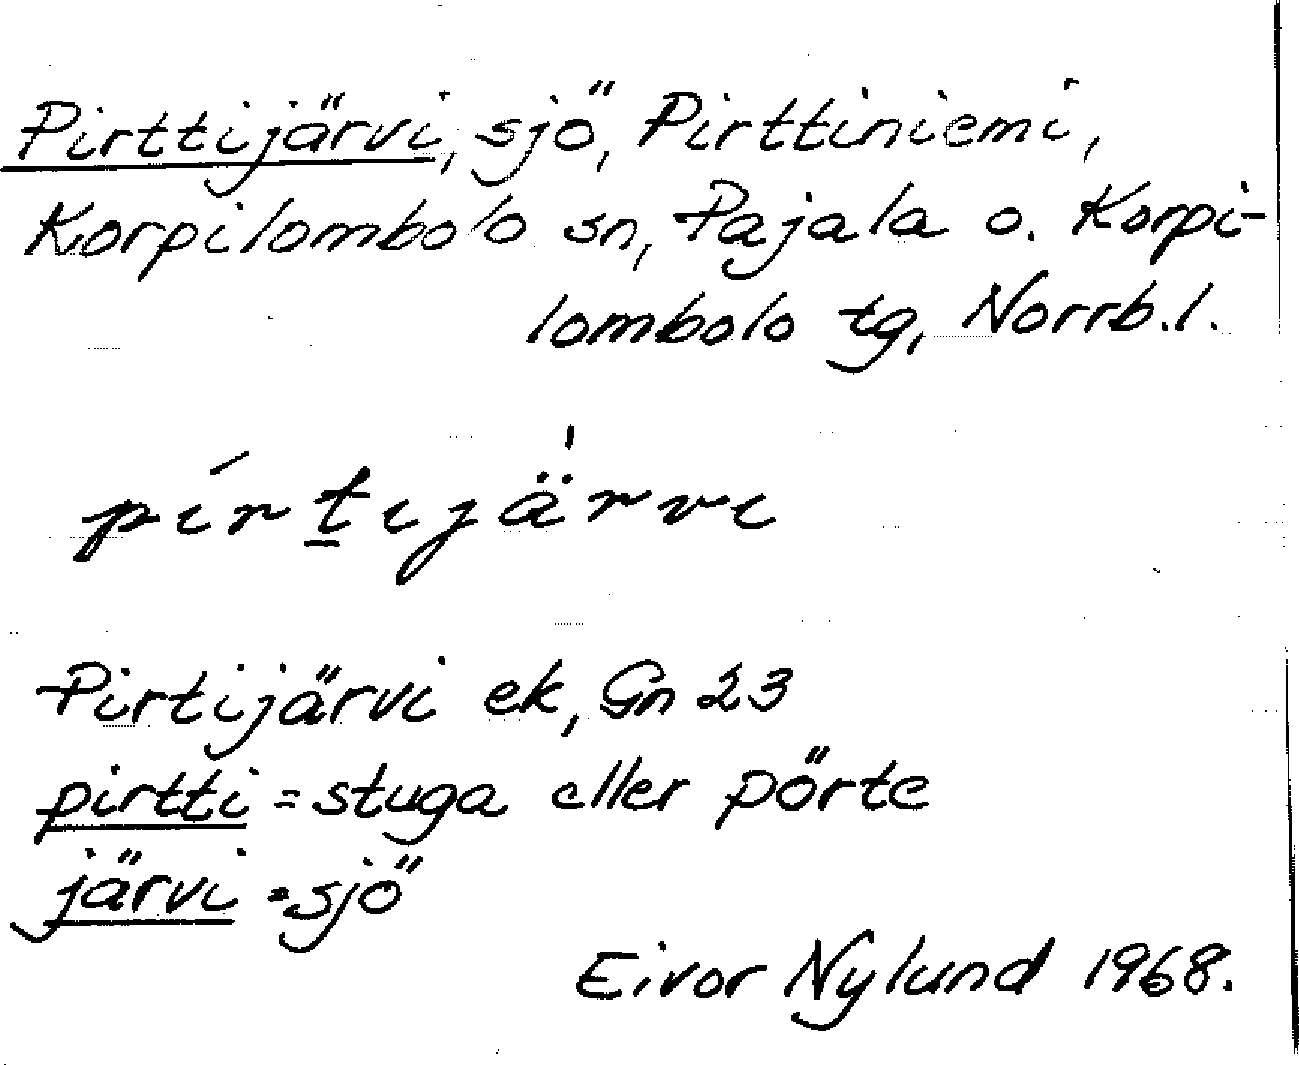 Pirttijärvi, sjö, Pirttiniemi,
Korpilombolo sn, Pajala o. Korpi-
lombolo tg, Norrb.l.
pírt̲ijä'rvi
Pirtijärvi ek, Gn 23
pirtti = stuga eller pörte
järvi = sjö
Eivor Nylund 1968.